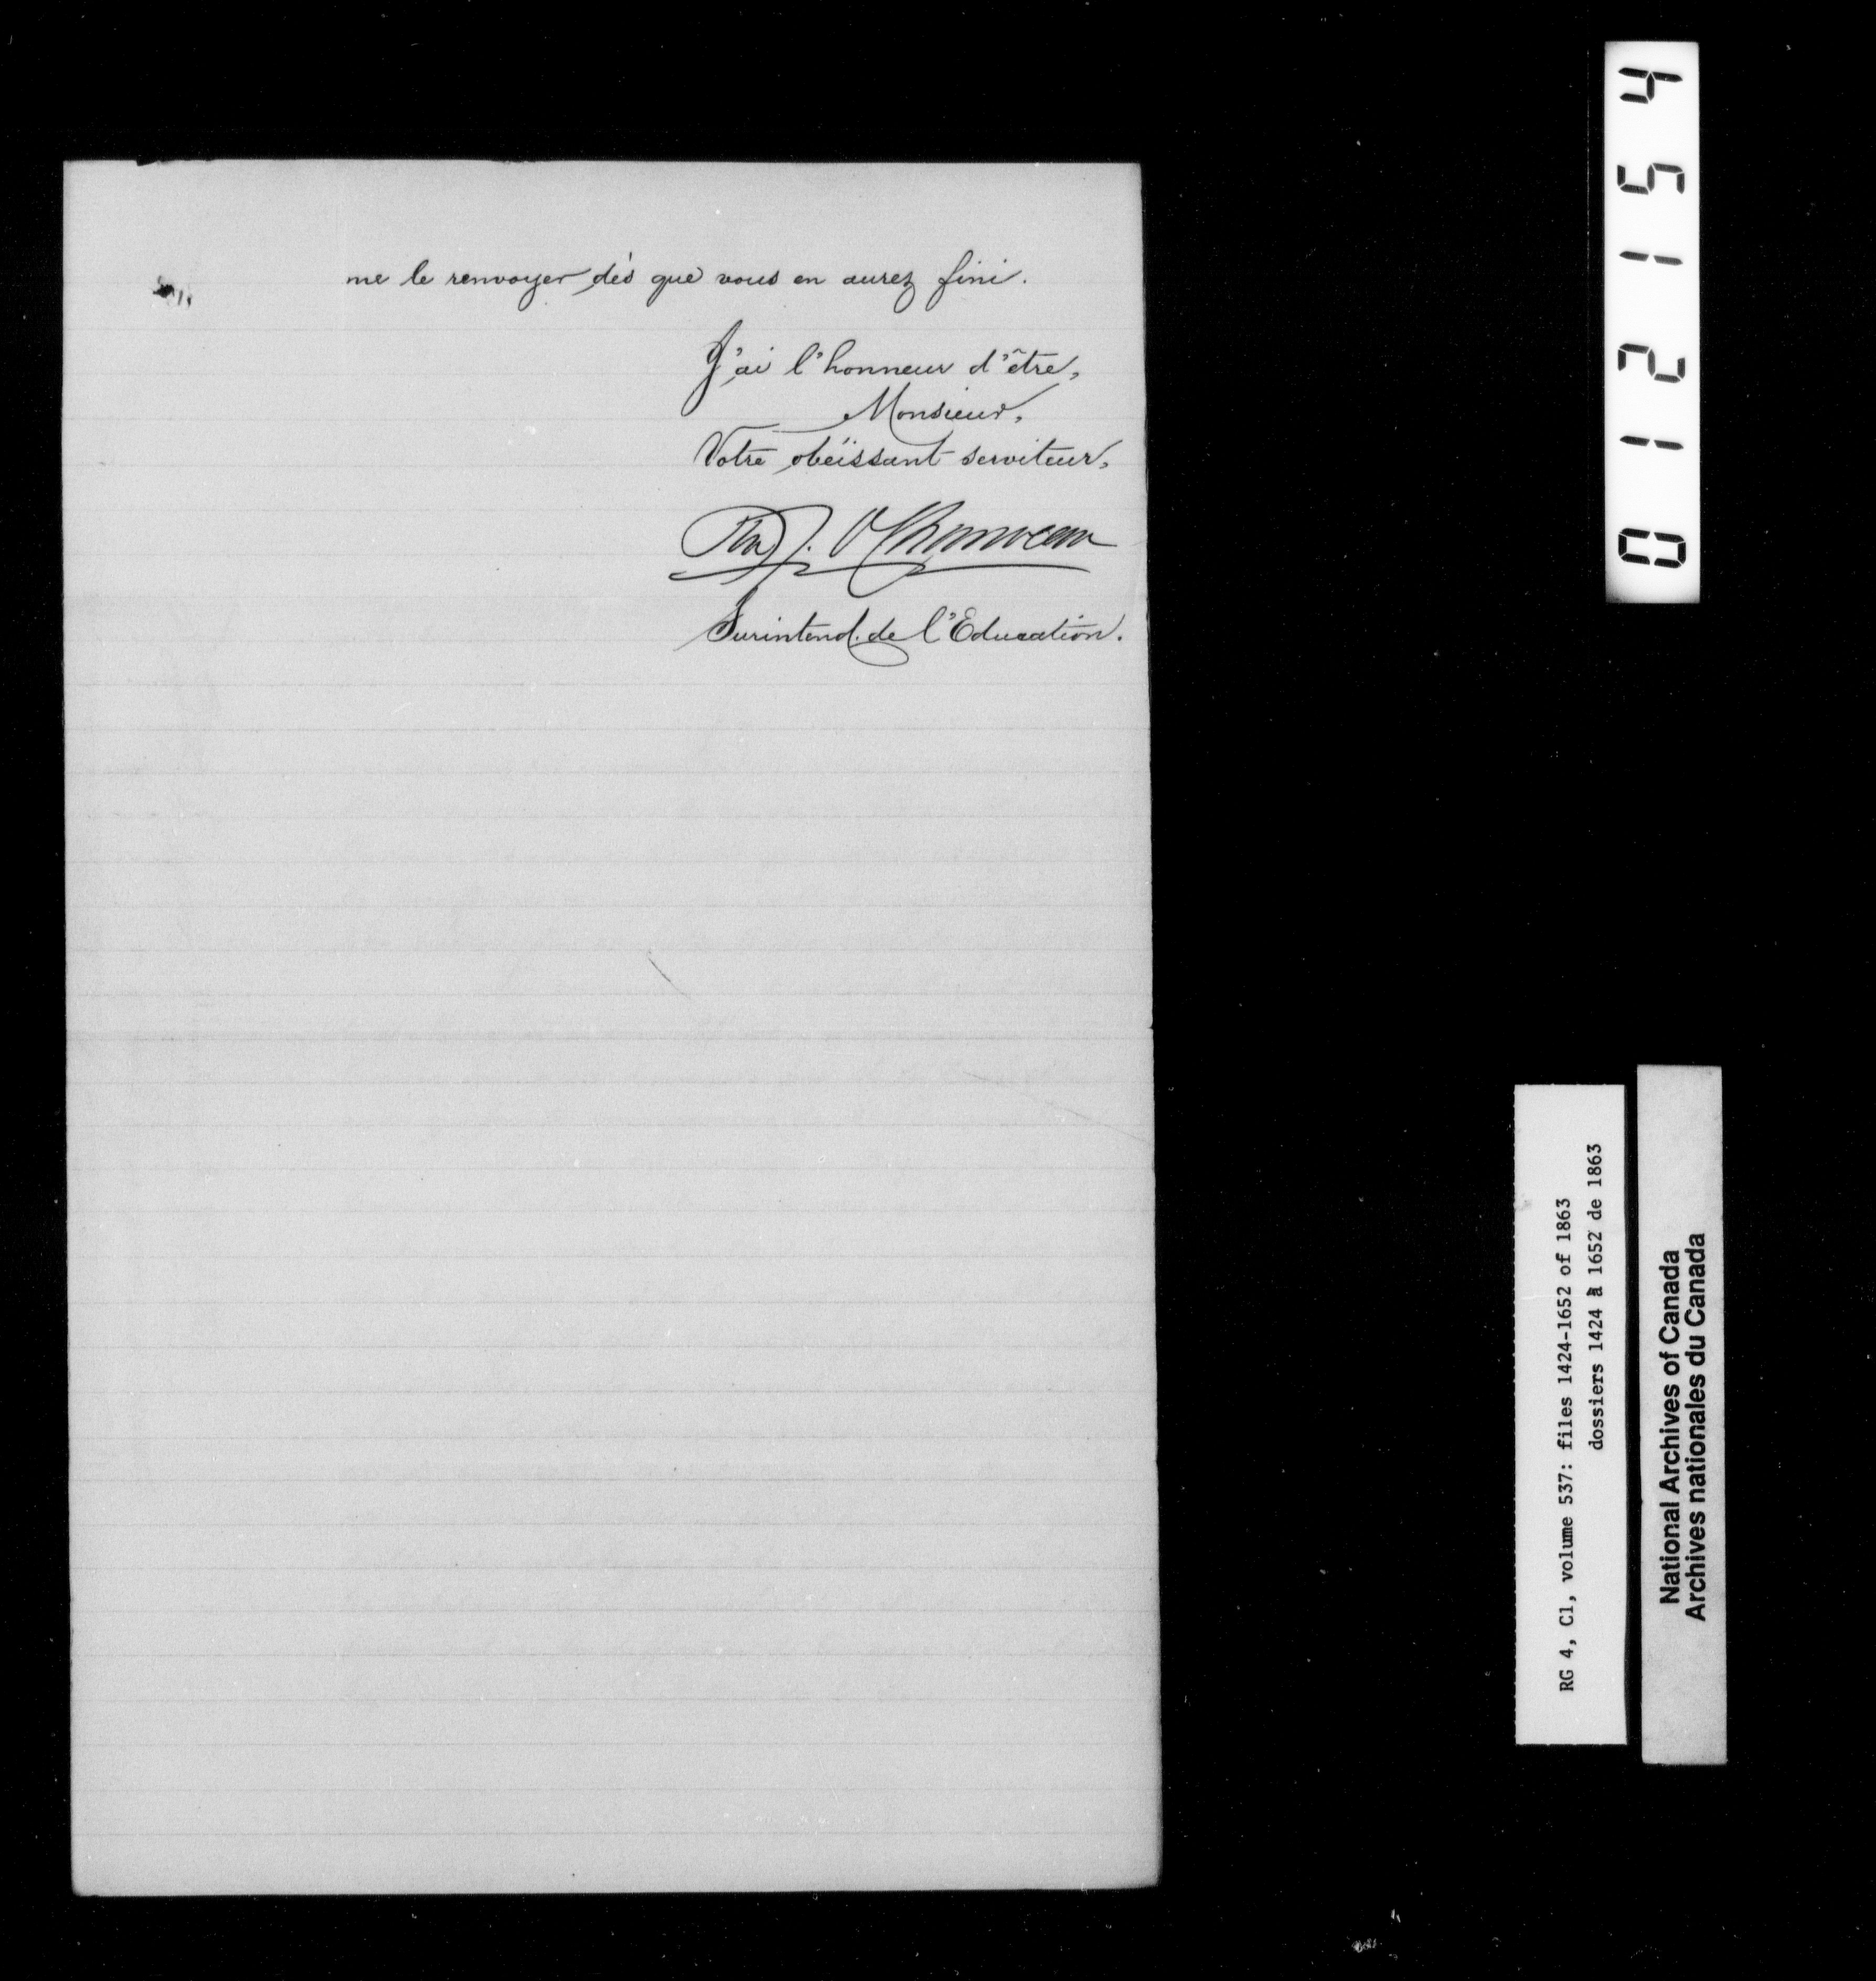 me le renvoyer dès que vous en aurez fini.
J'ai l'honneur d'être,
Monsieur,
Votre obéissant serviteur,
Chauveau
Surintend. de l'Education.
012154
RG 4, C1, volume 537: files 1424-1652 of 1863
dossiers 1424 à 1652 de 1863
National Archives of Canada
Archives nationales du Canada